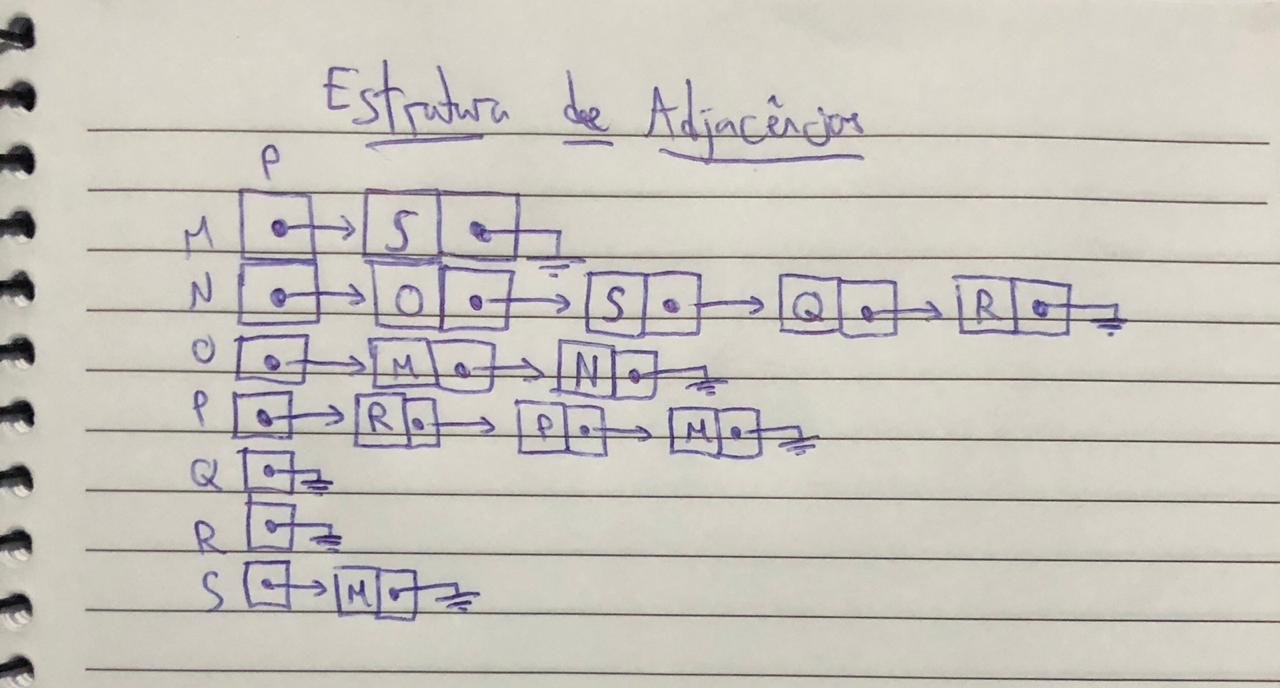 Estrutura de Adjacências
P
M S
N O S Q R
O M N
P R P M
Q
R
S M